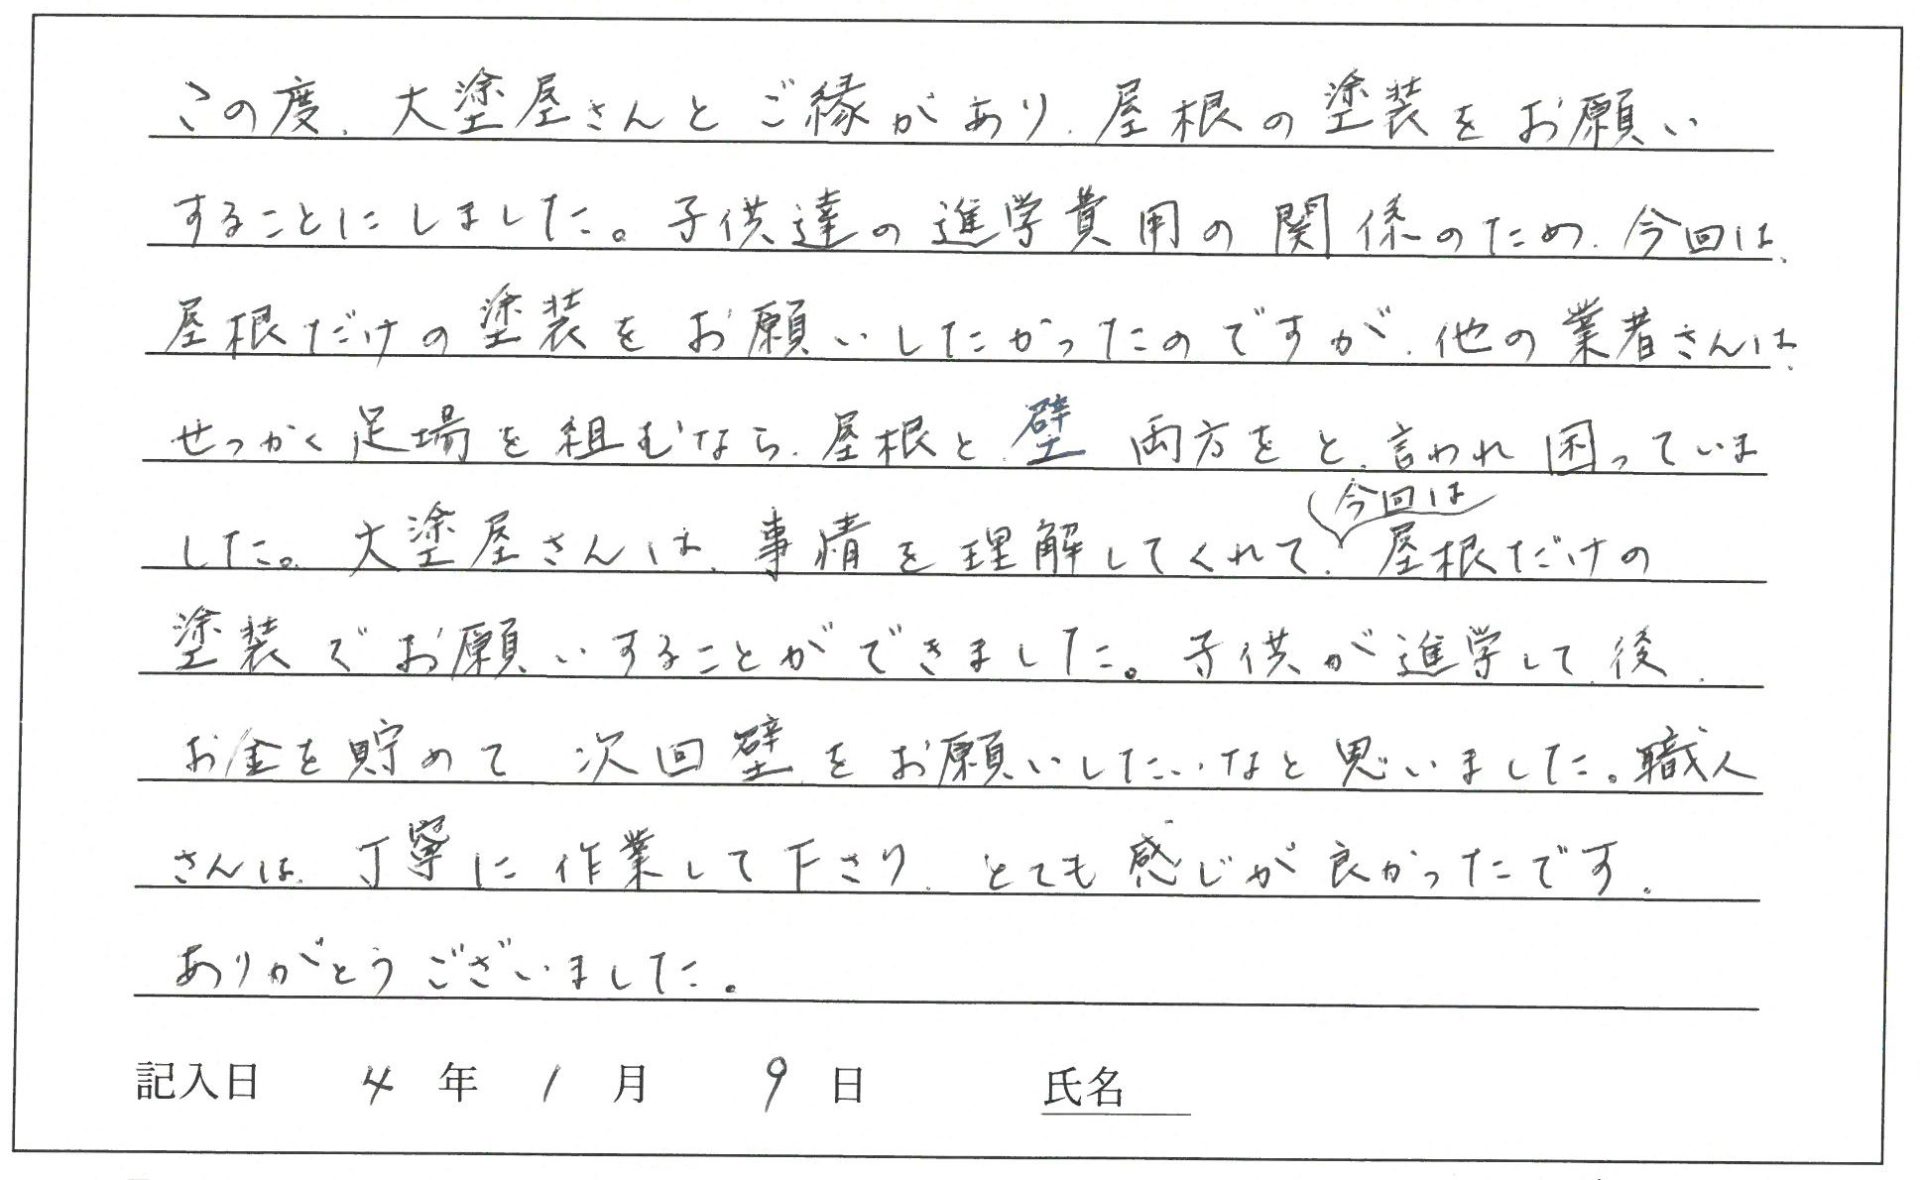 この度、大塗屋さんとご縁があり、屋根の塗装をお願い
することにしました。子供達の進学費用の関係のため、今回は、
屋根だけの塗装をお願いしたかったのですが、他の業者さんは、
せっかく足場を組むなら、屋根と、壁 両方をと、言われ困っていま
した。大塗屋さんは、事情を理解してくれて、今回は屋根だけの
塗装でお願いすることができました。子供が進学して、後、
お金を貯めて 次回壁をお願いしたいなと思いました。職人
さんは、丁寧に作業して下さり、とても感じが良かったです。
ありがとうございました。
記入日 4 年 1 月 9 日 氏名